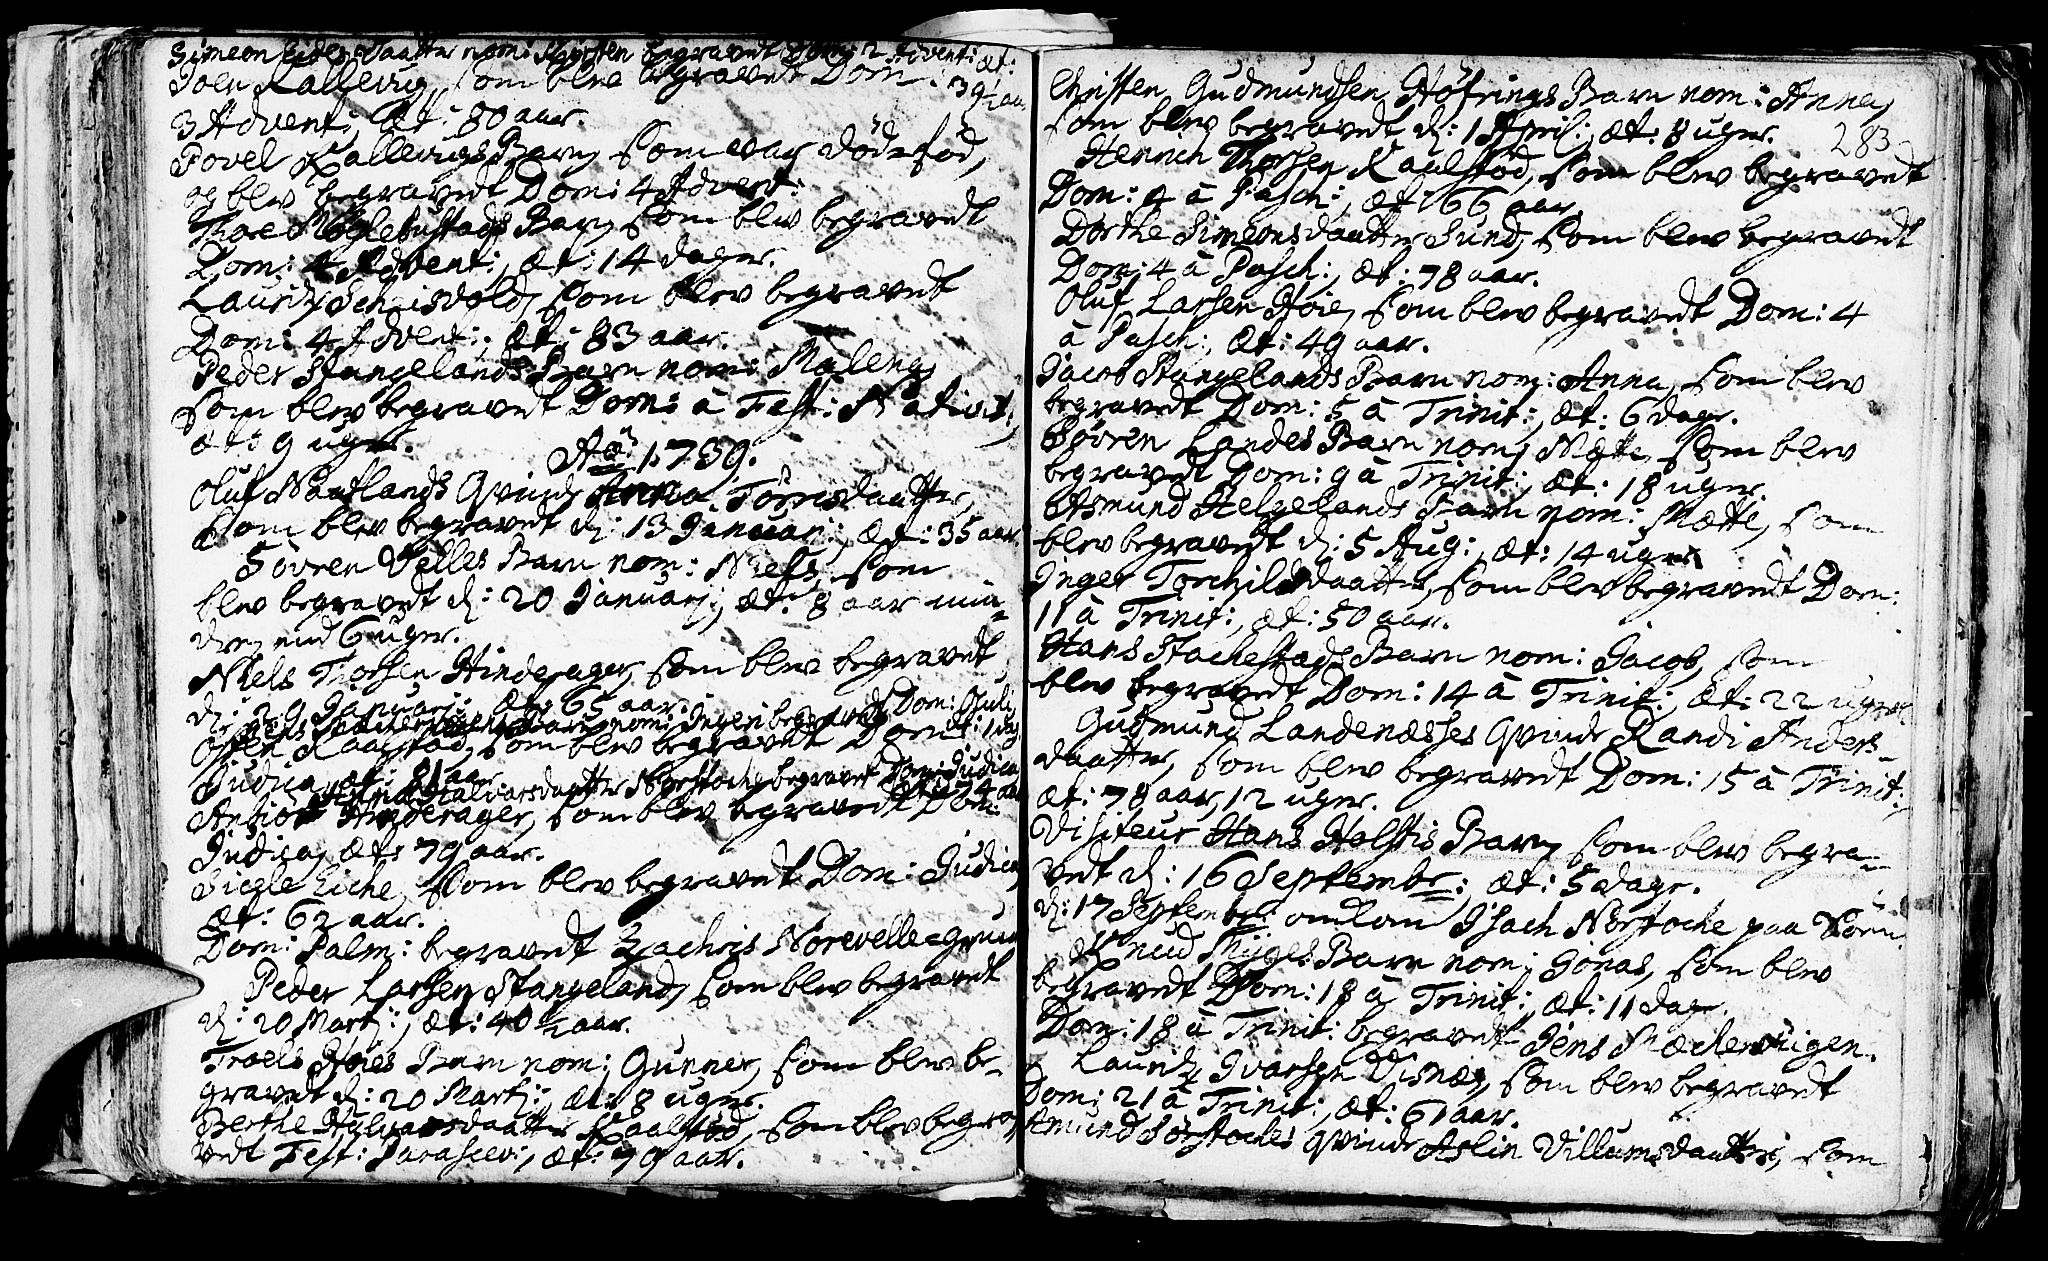 Simeon Eides Daatter nom: Kirsten begravet Dom: 2 Advent: æt:
Joen Kallevig, som blev begravet Dom: 39 1/2 aar
3 Advent:, æt: 80 aar.
Povel Kallevigs Barn, som var dödfød,
og blev begravedt Dom: 4 Advent:
Thore Møglebustads Barn, som blev begravedt
Dom: 4 Advent:, æt: 14 dager.
Lauridz Scheisvold, som blev begravedt
Dom: 4 Advent:, æt: 83 aar.
Peder Stangelands Barn nom: Malena,
som blev begravedt Dom: à Fest: Nativit:,
æt: 9 uger.
Aö: 1739.
Oluf Nautlands Qvinde Anna Törrisdaatter,
som blev begravedt d: 13 Januarj:, æt: 35 aar.
Sövren Velles Barn nom: Niels, som
blev begravedt d: 20 Januarj:, æt: 8 aar min-
dre end 6 uger.
Niels Thorsen Hinderager, som blev begravet
d: 29 Januarj: æt: 65 aar.
Barn nom: Inger begravedt Dom: Juli
Osten Kaalstad, som blev begravedt Dom: 1 dag
Judica, æt: 81 aar.
Halvarsdaatter Norstoche begravet Dom: Judica,
Anbiör Hinderager, som blev begravedt Dom: æt: 74 aar
Judica, æt: 79 aar.
Siegle Eiche, som blev begravedt Dom: Judica,
æt: 62 aar.
Dom: Palm: begravedt Zachris Norevelle-grun
Peder Larsen Stangeland, som blev begravedt
d: 20 Martj:, æt: 40 1/2 aar.
Troels Høies Barn nom: Gunner, som blev be-
gravedt d: 20 Martj:, æt: 8 uger.
Berthe Halvarsdaatter Kaalstød, som blev begra-
vedt Fest: Parascev:, æt: 79 aar.
Christen Gudmundsen Høfrings Barn nom: Anna,
som blev begravedt d: 1 April:, æt: 8 uger.
283
Hennich Thorsen Kaalstød, som blev begravedt
Dom: 4 à Pasch:, æt: 66 aar.
Dorthe Simeonsdaatter Sund, som blev begravedt
Dom: 4 à Pasch:, æt: 78 aar.
Oluf Larsen Høie, som blev begravedt Dom: 4
à Pasch:, æt: 49 aar.
Jacob Stangelands Barn nom: Anna, som blev
begravedt Dom: 5 à Trinit:, æt: 6 dage.
Sövren Landes Barn nom: Mætte, som blev
begravedt Dom: 9 à Trinit:, æt: 18 uger.
Asmund Helgelands Barn nom: Mætte, som
blev begravedt d: 5 Aug:, æt: 14 uger.
Inger Torchilsdaatter, som blev begravedt Dom:
11 à Trinit:, æt: 50 aar.
Hans Stachestads Barn nom: Jacob, som
blev begravedt Dom: 14 à Trinit:, æt: 22 uger
Gudmund Landenæsses Qvinde Randi Anders-
daatter, som blev begravedt Dom: 15 à Trinit:,
æt: 78 aar, 12 uger.
Visiteur Hans Holstis Barn, som blev begra-
vedt d: 16 Septembr:, æt: 5 dage.
d: 17 Septembr: omkom Isach Norstoche paa Söen.
Knud Myges Barn nom: Jonas, som blev
begravedt Dom: 18 à Trinit:, æt: 11 dage.
Dom: 18 à Trinit: begravedt Jens Mæchevigen.
Lauridz Ivarsen Visnæs, som blev begravedt
Dom: 21 à Trinit:, æt: 61 aar.
Amund Sørstoches Qvinde Aslin Villumsdaatter, som